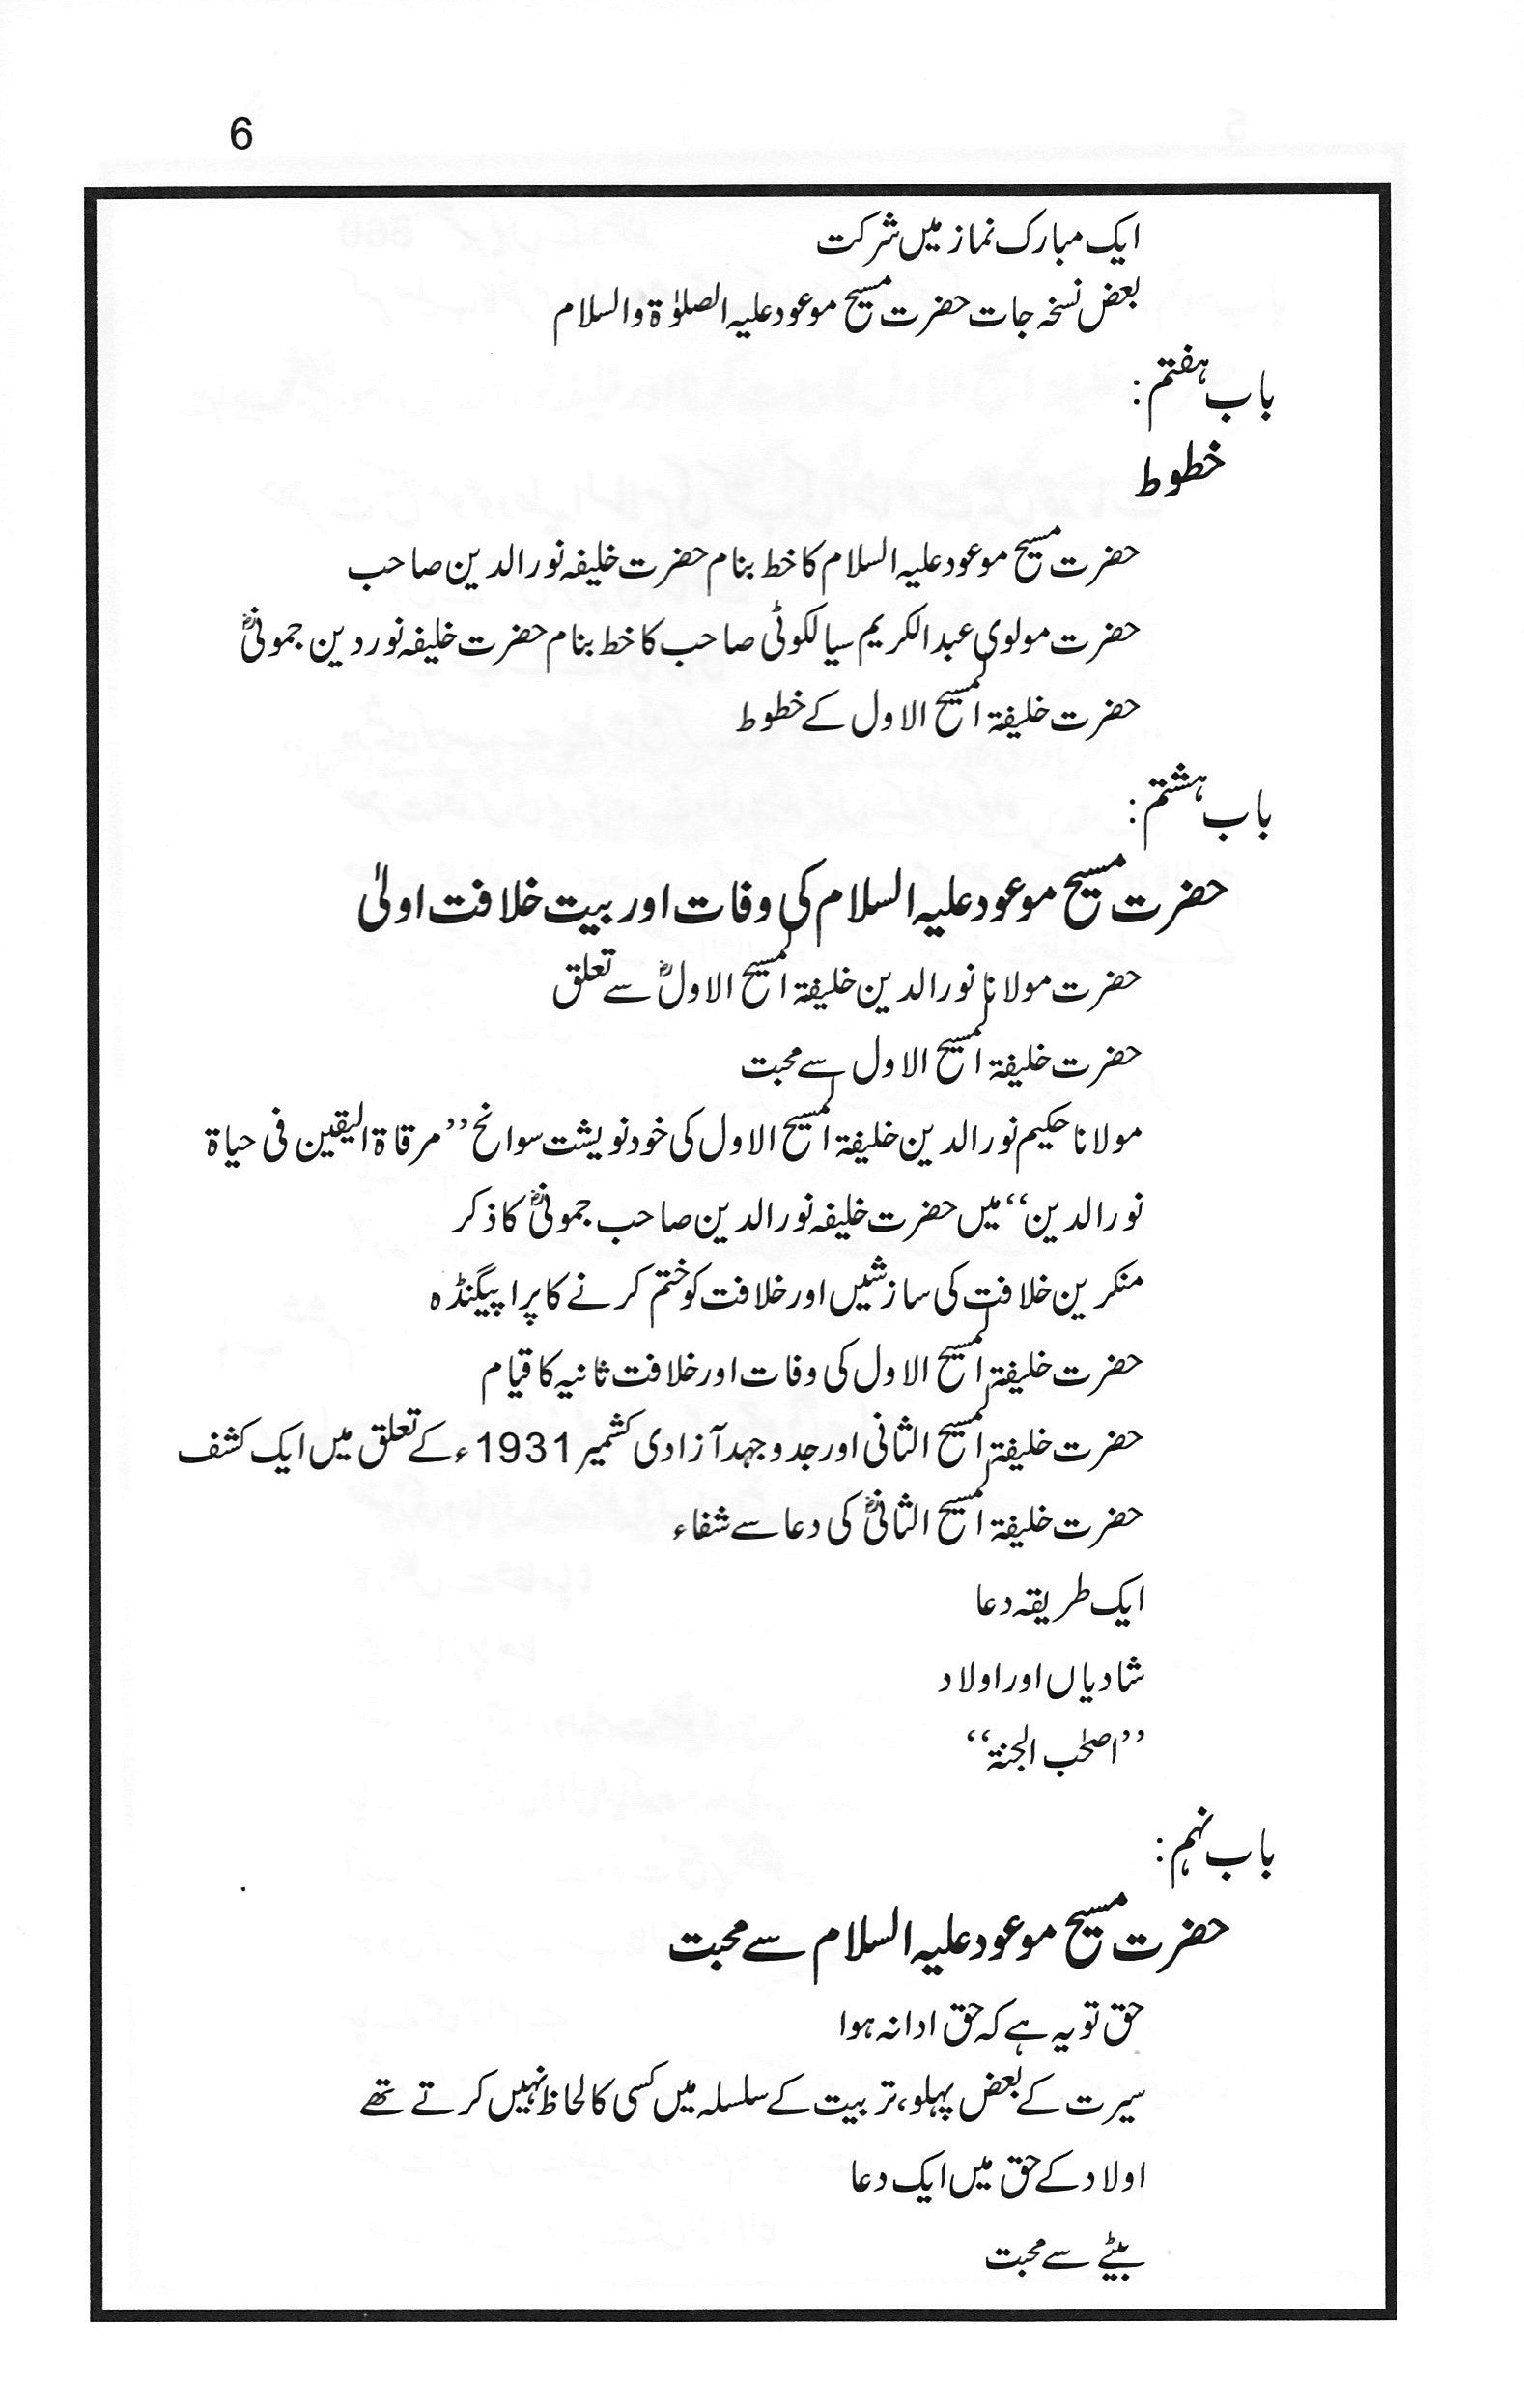 6
ایک مبارک نماز میں شرکت
بعض نسخہ جات حضرت مسیح موعود علیہ الصلوٰۃ والسلام
باب ہفتم:
خطوط
حضرت مسیح موعود علیہ السلام کا خط بنام حضرت خلیفہ نور الدین صاحب
حضرت مولوی عبد الکریم سیالکوٹی صاحب کا خط بنام حضرت خلیفہ نور دین جمونیؓ
حضرت خلیفۃ المسیح الاول کے خطوط
باب ہشتم:
حضرت مسیح موعود علیہ السلام کی وفات اور بیت خلافت اولیٰ
حضرت مولانا نور الدین خلیفۃ المسیح الاولؓ سے تعلق
حضرت خلیفۃ المسیح الاول سے محبت
مولانا حکیم نور الدین خلیفۃ المسیح الاول کی خود نویشت سوانح ’’مرقاۃ الیقین فی حیاۃ
نور الدین‘‘ میں حضرت خلیفہ نور الدین صاحب جمونیؓ کا ذکر
منکرین خلافت کی سازشیں اور خلافت کو ختم کرنے کا پراپیگنڈہ
حضرت خلیفۃ المسیح الاول کی وفات اور خلافت ثانیہ کا قیام
حضرت خلیفۃ المسیح الثانی اور جدوجہد آزادی کشمیر 1931ء کے تعلق میں ایک کشف
حضرت خلیفۃ المسیح الثانیؓ کی دعا سے شفاء
ایک طریقہ دعا
شادیاں اور اولاد
’’اصحٰب الجنۃ‘‘
باب نہم:
حضرت مسیح موعود علیہ السلام سے محبت
حق تو یہ ہے کہ حق ادا نہ ہوا
سیرت کے بعض پہلو، تربیت کے سلسلہ میں کسی کا لحاظ نہیں کرتے تھے
اولاد کے حق میں ایک دعا
بیٹے سے محبت